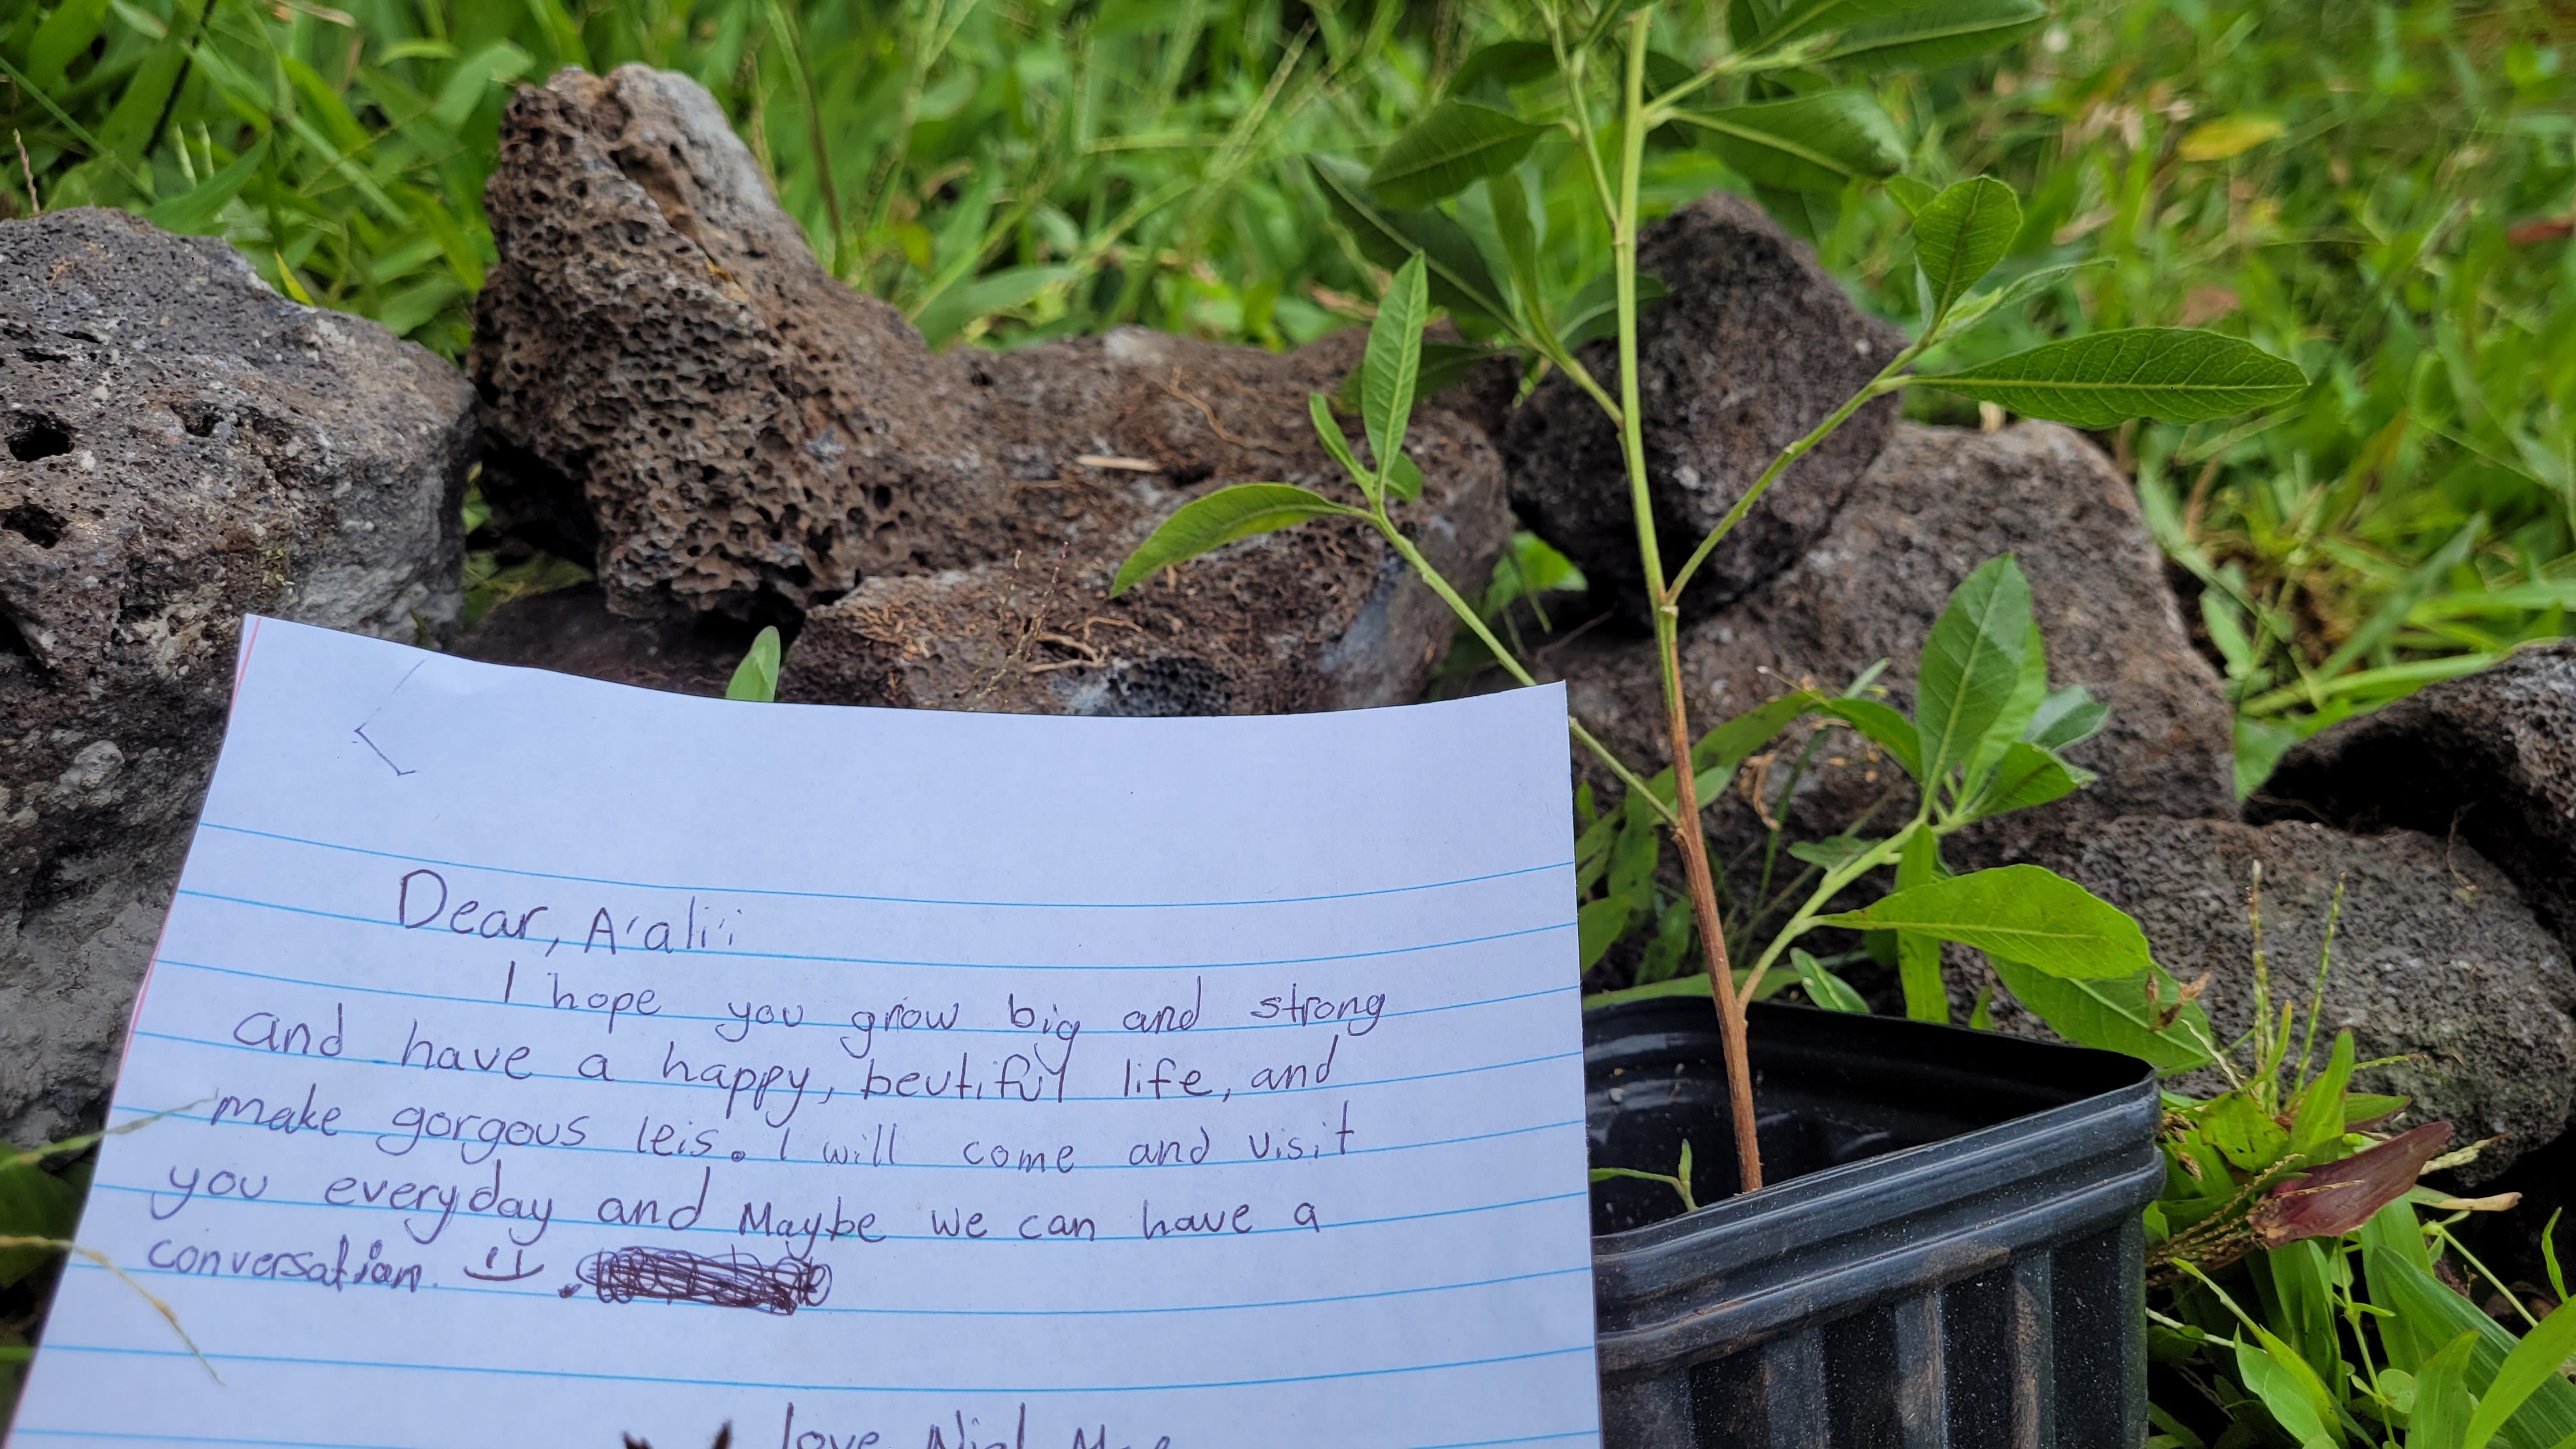 Dear, A'ali'i
I hope you grow big and strong
and have a happy, beutiful life, and
make gorgous leis. I will come and visit
you everyday and Maybe we can have a
conversation.
love